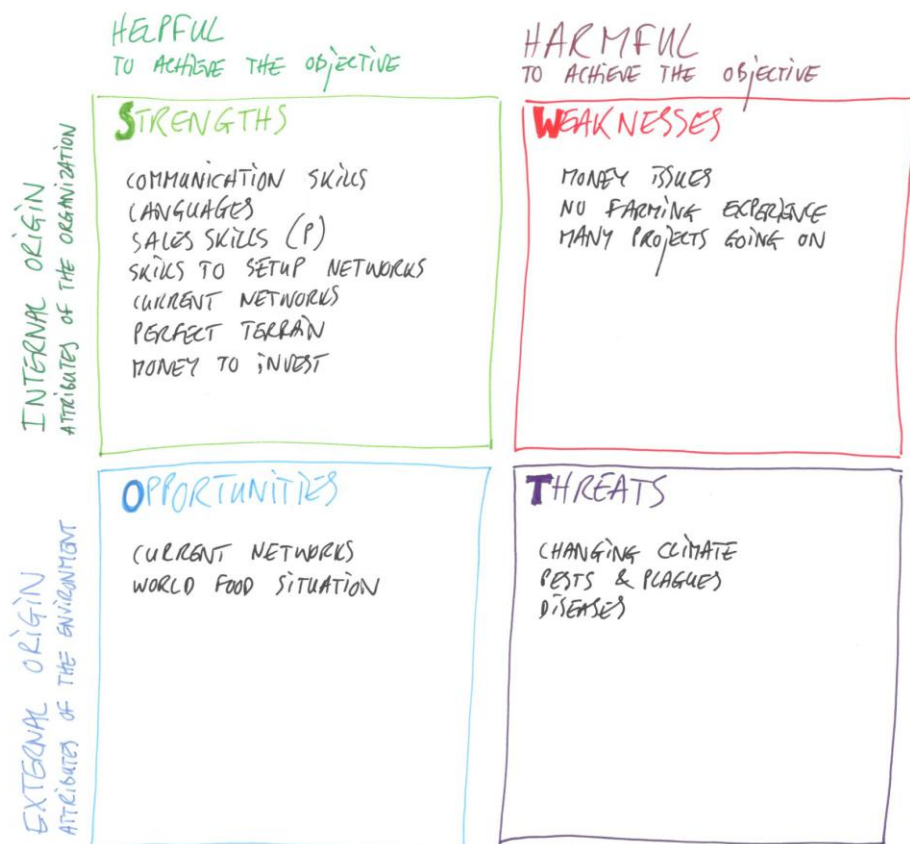 HELPFUL
TO ACHIEVE THE OBJECTIVE
HARMFUL
TO ACHIEVE THE OBJECTIVE
INTERNAL ORIGIN
ATTRIBUTES OF THE ORGANIZATION
STRENGTHS
COMMUNICATION SKILLS
LANGUAGES
SALES SKILLS (P)
SKILLS TO SETUP NETWORKS
CURRENT NETWORKS
PERFECT TERRAIN
MONEY TO INVEST
WEAKNESSES
MONEY ISSUES
NO FARMING EXPERIENCE
MANY PROJECTS GOING ON
EXTERNAL ORIGIN
ATTRIBUTES OF THE ENVIRONMENT
OPPORTUNITIES
CURRENT NETWORKS
WORLD FOOD SITUATION
THREATS
CHANGING CLIMATE
PESTS & PLAGUES
DISEASES